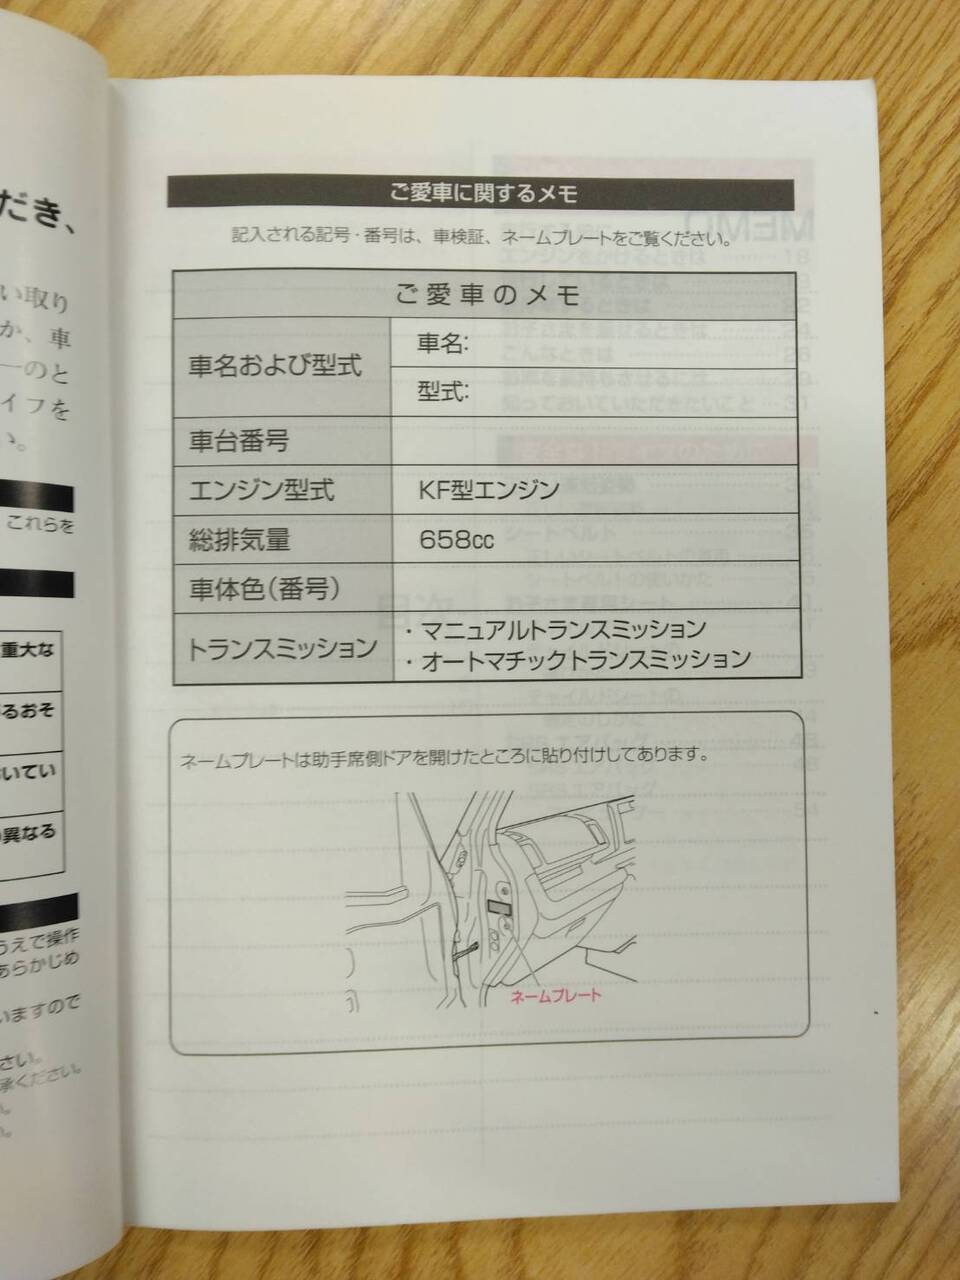 だき、
い取り
か、車
一のと
イフを
い。
これらを
重大な
るおそ
いてい
異なる
うえで操作
あらかじめ
いますので
さい。
承ください。
い。
い。
ご愛車に関するメモ
記入される記号・番号は、車検証、ネームプレートをご覧ください。
ご愛車のメモ
車名および型式
車名:
型式:
車台番号
エンジン型式 KF型エンジン
総排気量 658cc
車体色(番号)
トランスミッション
・マニュアルトランスミッション
・オートマチックトランスミッション
ネームプレートは助手席側ドアを開けたところに貼り付けしてあります。
ネームプレート